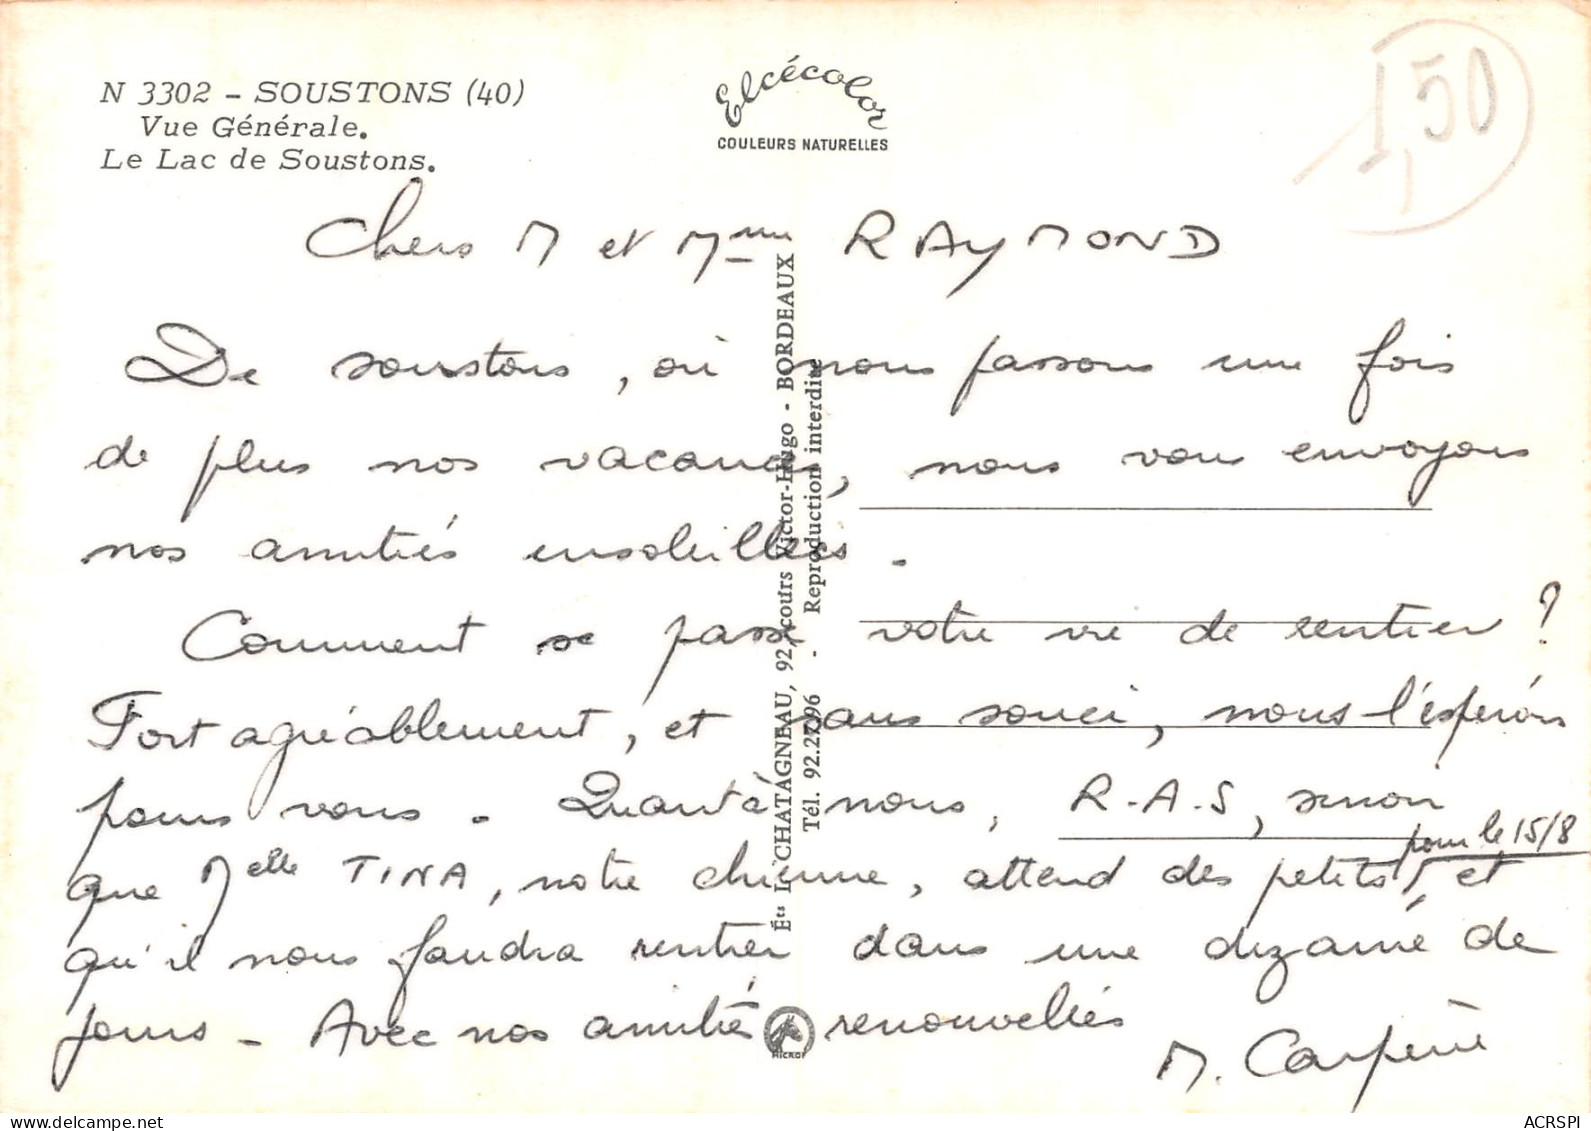 N 3302 - SOUSTONS (40)
Vue Générale.
Le Lac de Soustons.
Elcécolor
COULEURS NATURELLES
1,50
Chers M et Mme RAYMOND
De Soustons, où nous passons une fois
de plus nos vacances, nous vous envoyons
nos amitiés ensoleillées.
Comment se passe votre vie de rentier ?
Fort agréablement, et sans souci, nous l'espérons
pour vous. Quant à nous, R.A.S, sinon
pour le 15/8
que Melle TINA, notre chienne, attend des petits, et
qu'il nous faudra rentrer dans une dizaine de
jours - Avec nos amitiés renouvelées
M.
Éts I. CHATAGNEAU, 92, cours Victor-Hugo - BORDEAUX
Tél. 92.27.96 - Reproduction interdite
www.delcampe.net
ACRSPI